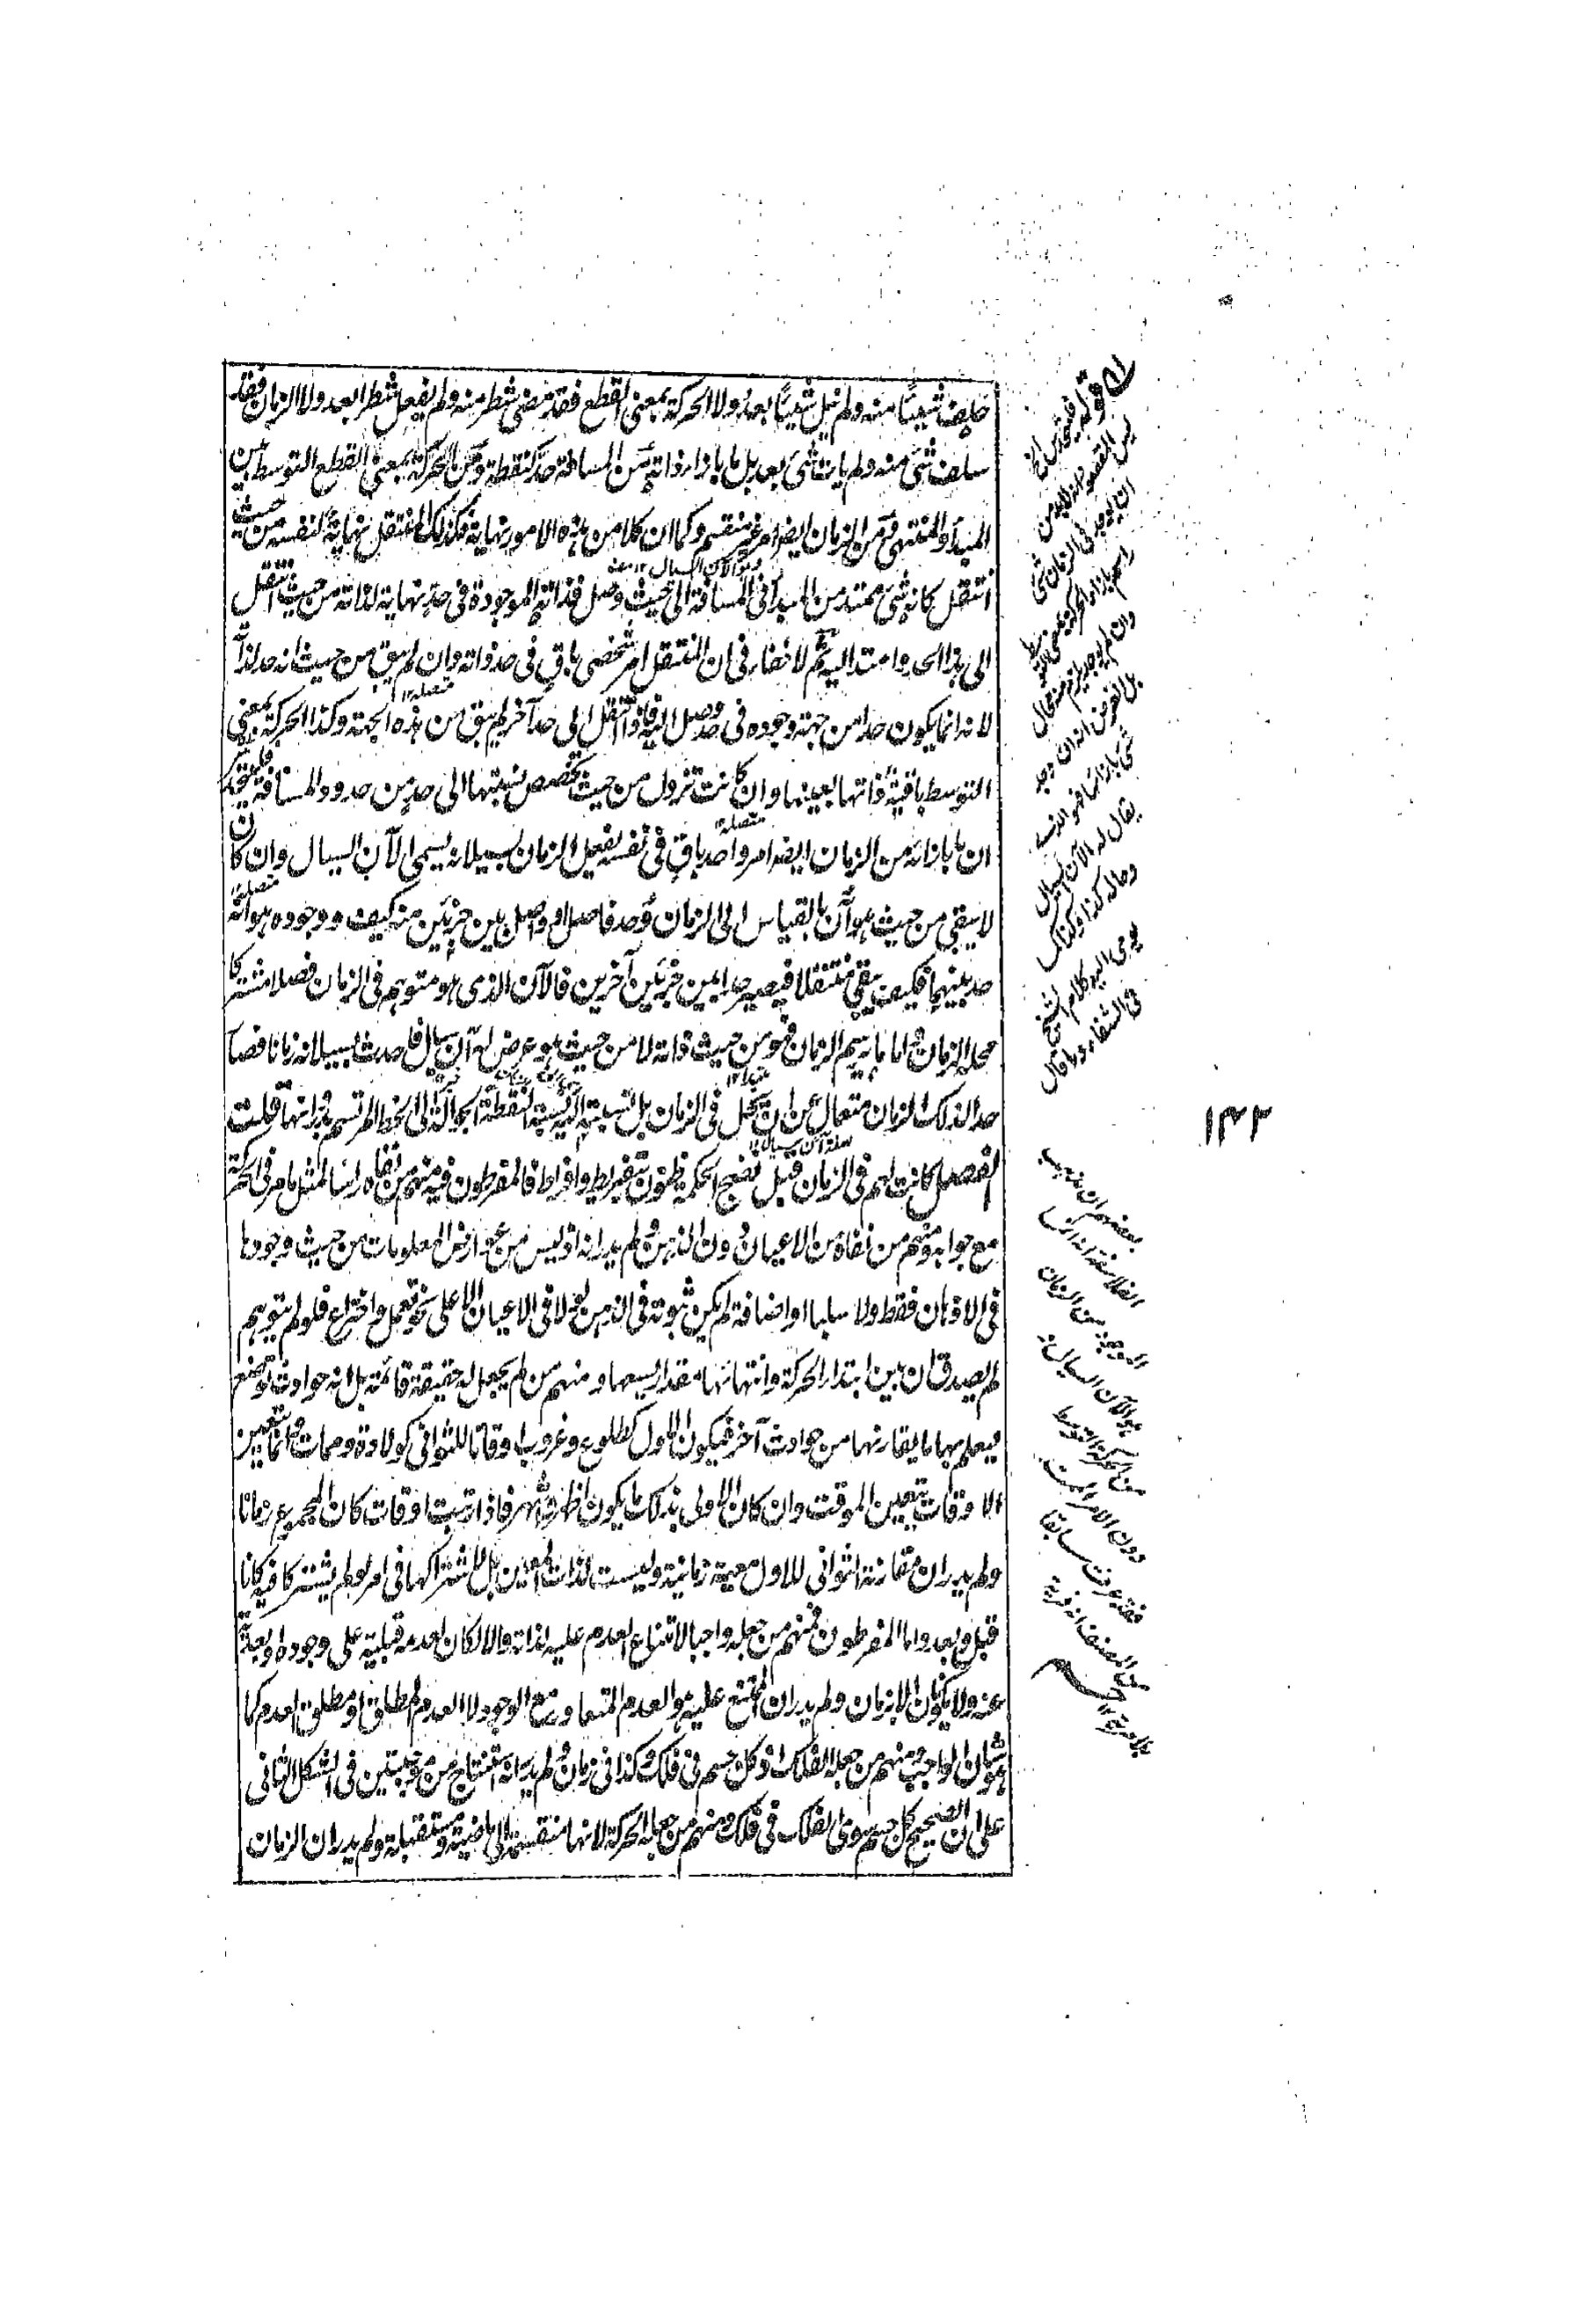 خلف شيئًا منه ولم ينل شيئًا بعد ولا الحركة بمعنى القطع فقد مضى شطر منه ولم يفعل شطرا بعد ولا الزمان فقد
سلف شئ منه ولم يات شئ بعد بل ما بازاء ذاته من المسافة حد كنقطة ومن الحركة بمعنى القطع التوسط بين
المبدأ والمنتهى ومن الزمان ايضا امر غير منقسم وكما ان كلا من هذه الامور نهاية فكذلك المنتقل نهاية لنفسه من حيث
انتقل كانه شئ ممتد من المبدأ فى المسافة الى حيث وصل فذاته الموجودة فى حد نهاية لذاته من حيث انتقل
الى هذا الحد وامتد اليه ثم لا خفاء فى ان المنتقل امر شخصى باق فى حد ذاته وان لم يبق من حيث انه حد لذاته
لانه انما يكون حدا من جهة وجوده فى حد وصل اليه فاذا انتقل الى حد آخر لم يبق من هذه الجهة وكذا الحركة بمعنى
التوسط باقية ذاتها بعينها وان كانت تزول من حيث تخصص نسبتها الى حد من حدود المسافة
ان ما بازائه من الزمان ايضا امر واحد باق فى نفسه يفعل الزمان بسيلانه يسمى الآن السيال وان كان
لا يبقى من حيث هو آن بالقياس الى الزمان وحد فاصل او واصل بين جزئين منه كيف ووجوده هو انه
حد بينهما فكيف يبقى منتقلا فيصير حدا بين جزئين آخرين فالآن الذى هو متوهم فى الزمان فصلا مشتركا
محله الزمان واما ما يرسم الزمان فهو من حيث ذاته لا من حيث هو عرض له آن سيال فاحدث بسيلانه زمانا فصار
حدا لذلك الزمان متعال عن ان يحل فى الزمان بل نسبته اليه نسبة النقطة الجوالة الى الخط المرتسم
الفصل كانت لهم فى الزمان قبل نضج الحكمة ظنون تفريط وافراط فالمفرطون فيه منهم من نفاه راسا لمثل ما مر فى الحركة
مع جوابه ومنهم من نفاه عن الاعيان دون الذهن ولم يدر انه اذ ليس من عوارض المعلومات من حيث وجودها
فى الاذهان فقط ولا سلبا او اضافة لم يكن ثبوته فى الذهن لا فى الاعيان الا على نحو تعمل واختراع فلو لم يتوهم
لم يصدق ان بين ابتداء الحركة وانتهائها مقدارا يسعها ومنهم من لم يجعل له حقيقة قائمة بل انه حوادث توضع
فيعلم بها ما يقارنها من حوادث آخر فيكون الاول كطلوع وغروب اوقاتا للثوانى كولادة وممات وانما يتعين
الاوقات بتعيين الموقت وان كان الاولى بذلك ما يكون اظهر واشهر فاذا رتبت اوقات كان المجموع زمانا
ولم يدر ان مقارنة الثوانى للاول معية زمانية وليست لذات المعين بل لاشتراكهما فى امر لو لم يشتركا فيه كانا
قبل وبعد واما المفرطون فمنهم من جعله واجبا لامتناع العدم عليه لذاته والا لكان لعدمه قبلية على وجوده او بعدية
عنه ولا يكونان الا بزمان ولم يدر ان الممتنع عليه هو العدم المتعاور مع الوجود لا العدم المطلق او مطلق العدم كما
هو شان الواجب ومنهم من جعله الفلك اذ كل جسم فى فلك وكذا فى زمان ولم يدر انه استنتاج من موجبتين فى الشكل الثانى
على ان الصحيح كل جسم سوى الفلك فى فلك ومنهم من جعله الحركة لانها منقسمة الى ماضية ومستقبلة ولم يدر ان الزمان
ليس المقصود انه لابد من
ان يوجد فى الزمان شئ
بل الغرض انه ان وجد
يقال له الآن السيال
وحاله كذا وكذلك
يومى اليه كلام الشيخ
فى الشفاء
١٤٢
بعضهم ان مذهب
الفلاسفة ان
الموجود من الزمان
هو الآن السيال
من الحركة التوسط
دون الامر الممتد
فقد عرفت سابقا
من المصنف انه فرية